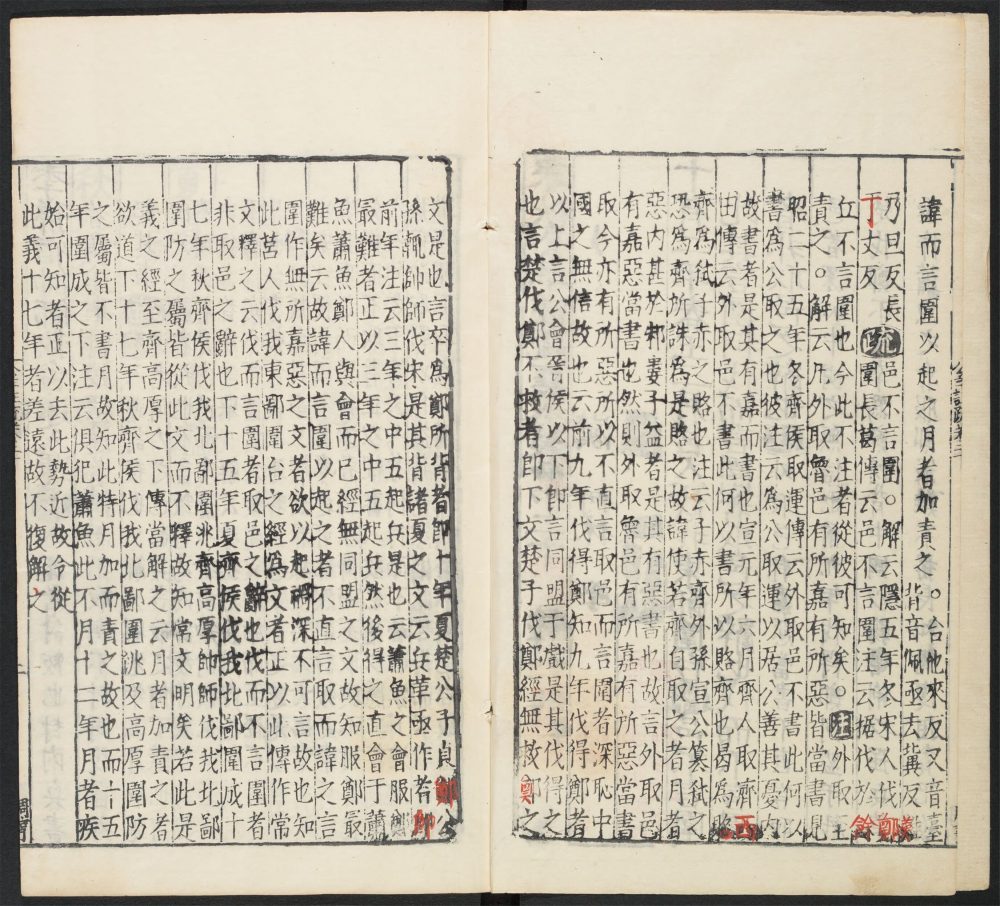 諱而言圍以起之月者加責之。台他來反又音臺
背音佩亟去冀反
乃旦反長
丁丈反
疏
邑不言圍。解云隱五年冬宋人伐
圍長葛傳云邑不言圍注云据伐於
丘不言圍也今此不注者從彼可知矣。注外取
責之。解云凡外取魯邑有所嘉有所惡皆當書見
昭二十五年冬齊侯取運傳云外取邑不書此何以
書爲公取之也彼注云爲公取運以居公善其憂内
故書者是其有嘉而書也宣元年六月齊人取濟西
田傳云外取邑不書此何以書所以賂齊也曷爲賂
齊爲弒子赤之賂也注云子赤齊外孫宣公簒弒之
恐爲齊所誅爲是賂之故諱使若齊自取之者月者
惡内甚於邾婁子益者是其有惡書也故言外取邑
有嘉惡當書也然則外取魯邑有所嘉有所惡當書
取今亦有所惡所以不直言取邑而言圍者深恥中
國之無信故也云前九年伐得鄭知九年伐得鄭者
以上言公會晉侯以下即言同盟于戲是其伐得之
也言楚伐鄭不救者即下文楚子伐鄭經無救鄭之
文是也言卒爲鄭所背者即十年夏楚公子貞鄭公
孫輒帥師伐宋是其背諸夏之文云兵革亟作者即
前年注云三年之中五起兵是也云蕭魚之會服鄭
最難者正以三年之中五起兵然後得之直會于蕭
魚蕭魚鄭人與會而已經無同盟之文故知服鄭最
難矣云故諱而言圍以起之者不直言取而諱言
圍作無所嘉惡之文者欲以起禍深不可言故也知
此莒人伐我東鄙圍台之經爲文者正以此傳作常
文釋之云伐而言圍者取邑之辭也伐而不言圍者
非取邑之辭也下十五年夏齊侯伐我北鄙圍成十
七年秋齊侯伐我北鄙圍洮齊高厚帥師伐我北鄙
圍防之屬皆從此文而不釋故知常文明矣若此是
義之經至齊高厚之下傳當解之云月者加責之者
欲道下十七年秋齊侯伐我北鄙圍洮及高厚圍防
之屬皆不書月故知此特月加而責之故也而十五
年圍成之下注云俱犯蕭魚此不月十二年月者疾
始可知者正以去此勢近故令從
此義十七年者差遠故不復解之